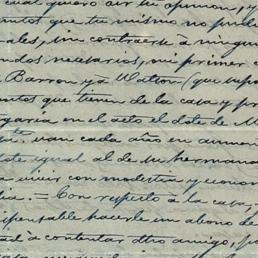 cual quiero oir tu opinion, y
antos que tu mismo no pued
ales, sin contraerte á ningun
ondos necesarios, mi primer c
Barron y a Watson (que supo
antos que tienen de la casa y p
rgaria en el acto el dote de M
te. van cada año en aumen
dote igual al de su hermana
a vivir con modestia y econom
lia. = Con respeto á la casa,
ispensable hacerle un abono de
ad á contentar dho amigo, p